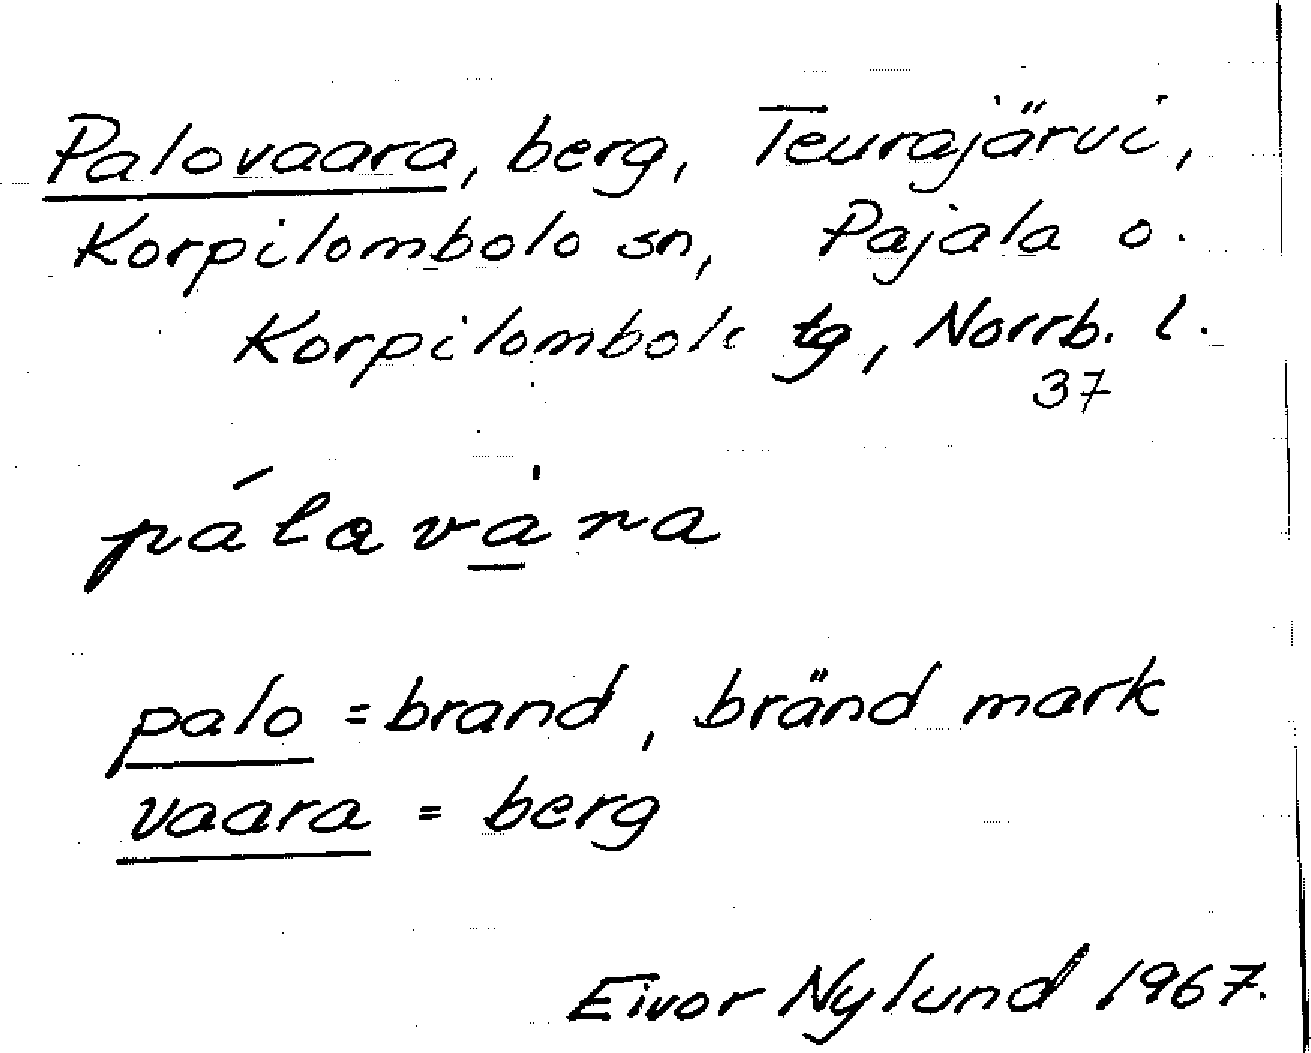 Palovaara, berg, Teurajärvi,
Korpilombolo sn, Pajala o.
Korpilombolo tg, Norrb. l.
37
pálavàra
palo = brand, bränd mark
vaara = berg
Eivor Nylund 1967.